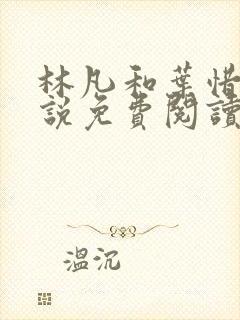 林凡和葉惜
說免費閱讀
溫沉